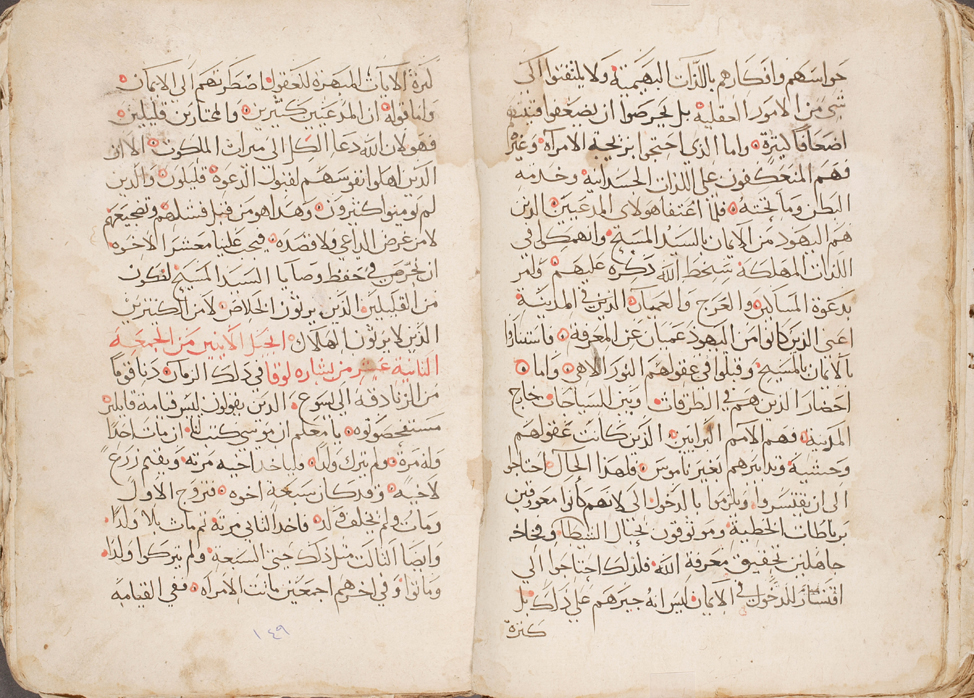 حواسهم وافكارهم باللذات البهيمية ولا يلتفتوا الى
شي من الامور العقلية بل يحرصوا ان يضعفوا قنيتهم
اضعافاً كثيرة واما الذي احتجا بزيجة الامراة وغيره
فهم المنعكفون على اللذات الجسدانية وخدمة
البطن وما تحته فلما اعتفا هولاى المدعيين الذين
هم اليهود من الايمان بالسيد المسيح وانهمكوا في
اللذات المهلكة سخط الله ذكره عليهم وامر
بدعوة المساكين والعرج والعميان الذين في المدينة
اعنى الذين كانوا من اليهود عميان عن المعرفة فاستنارا
بالايمان بالمسيح وقبلوا في عقولهم النور الالاهي واما
احضار الذين هم في الطرقات وبين السياجات خارج
المدينة فهم الامم البرانيين الذين كانت عقولهم
وحشية وتدابيرهم بغير ناموس فلهذا الحال احتاجوا
الى ان يقتسروا ويلزموا بالدخول الى لانهم كانوا معوقين
برباطات الخطية وموثوقون بحبال الشيطان وفخاخه
جاهلين بتحقيق معرفة الله فلذلك احتاجوا الى
اقتسار للدخول في الايمان ليس انه جبرهم على ذلك بل
كثرة
كثرة الايات المبهرة للعقول اضطرتهم الى الايمان
واما قوله ان المدعيين كثيرين والمختارين قليلين
فهو لان الله دعا الكل الى ميراث الملكوت الا ان
الذين اهلوا نفوسهم لقبول الدعوة قليلون والذين
لم يومنوا كثيرون وهذا هو من قبل فشلهم وتضجيعهم
لا من غرض الداعي ولا قصده فيجب علينا معشر الاخوه
ان نحرص في حفظ وصايا السيد المسيح لنكون
من القليلين الذين يرثون الخلاص لا من الكثيرين
الذين لا يرثون الهلاك انجيل الاثنين من الجمعة
الثانية عشر من بشارة لوقا في ذلك الزمان دنا قوماً
من الزنادقه الى يسوع الذين يقولون ليس قيامه قايلين
مستفحصونه يا معلم ان موسى كتب لنا ان مات احداً
وله مره ولم يترك ولداً فليأخذ اخيه مرته ويقيم زرعاً
لاخيه وقد كان سبعة اخوه فتزوج الاول
ومات ولم يخلف ولد فاخذ الثاني مرته ثم مات بلا ولداً
وايضا الثالث مثل ذلك حتى السبعة ولم يتركوا ولداً
وماتوا وفي اخرهم اجمعين ماتت الامراه ففي القيامة
١٤٩